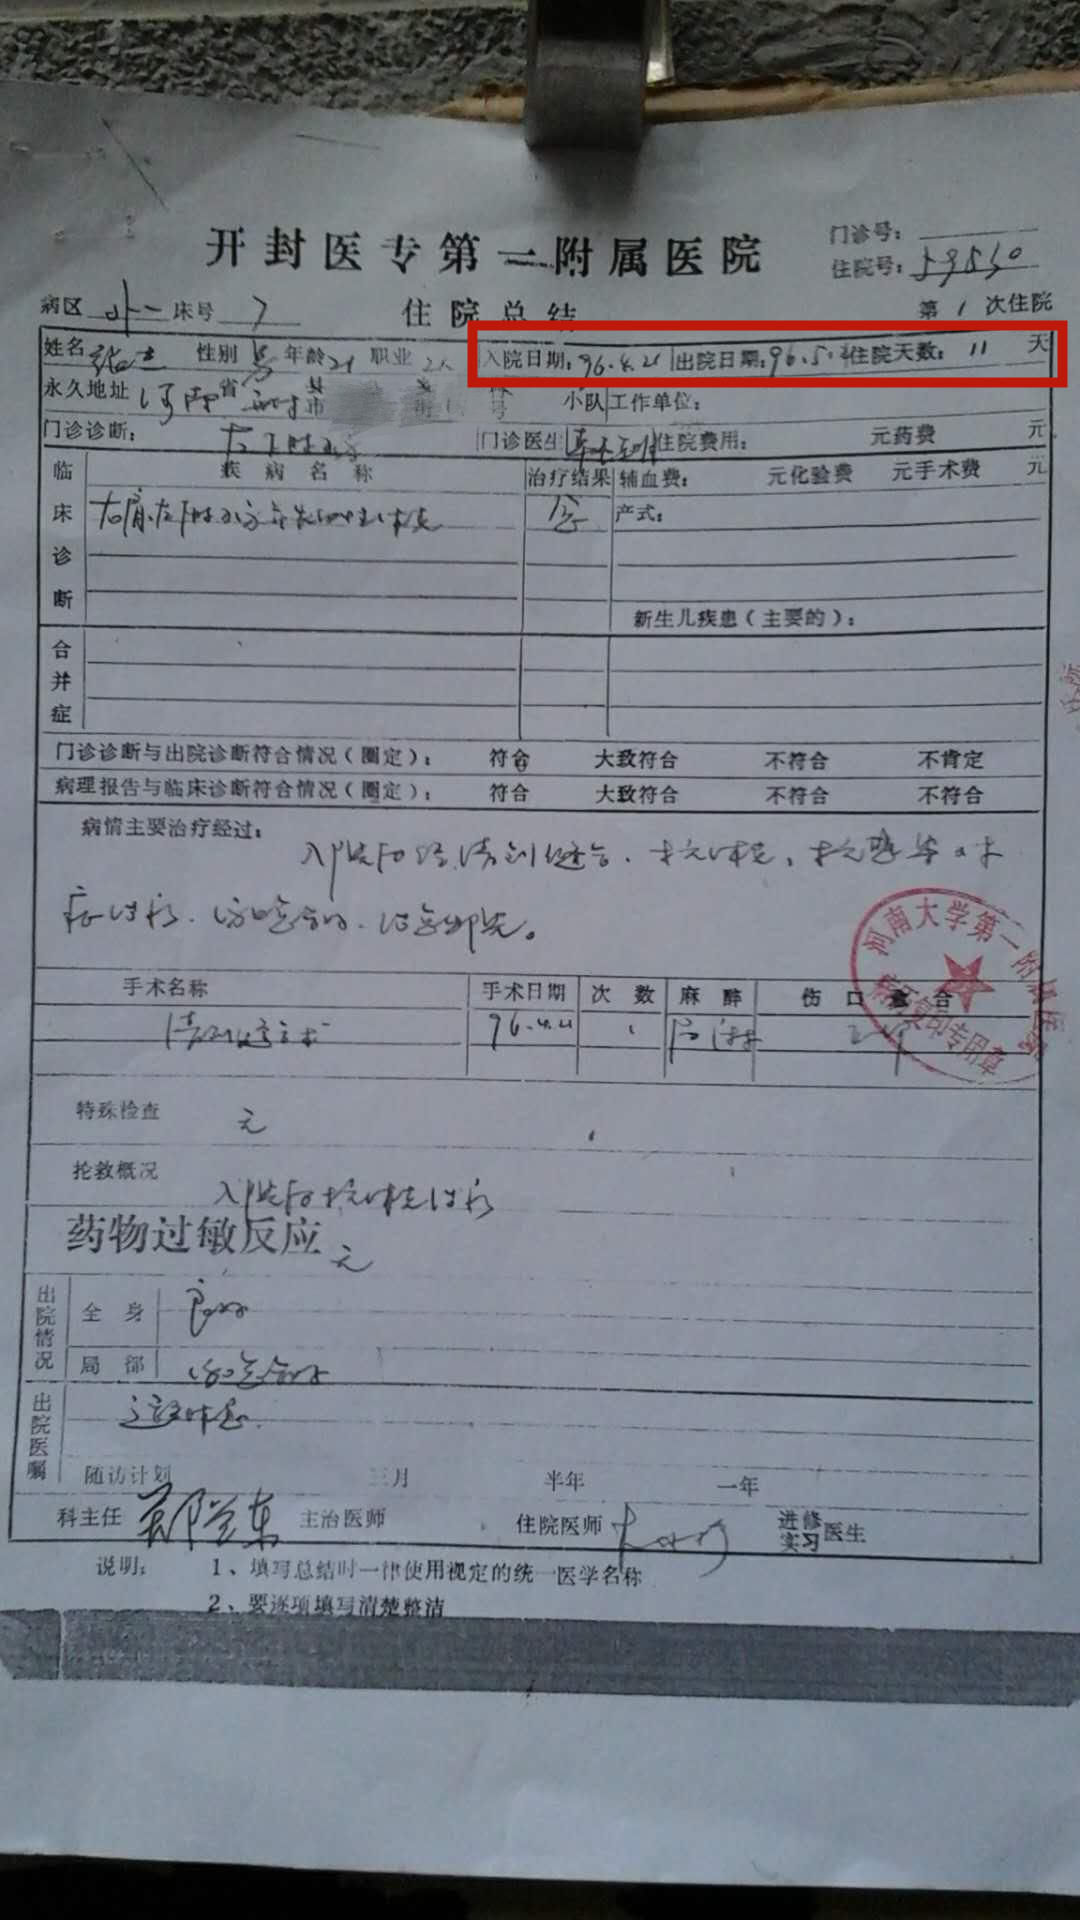 开封医专第一附属医院
门诊号:
住院号: 59530
病区 外一 床号 7 住院总结 第 1 次住院
姓名 性别 男 年龄 21 职业 工人 入院日期: 96.4.21 出院日期: 96.5.2 住院天数: 11 天
永久地址 河南 省 开封 市 县 街 号 小队 工作单位:
门诊诊断: 门诊医生 住院费用: 元 药费 元
临床诊断 疾病名称 治疗结果 输血费: 元 化验费 元 手术费 元
右肩、左 休克 愈 产式:
新生儿疾患(主要的):
合并症
门诊诊断与出院诊断符合情况(圈定): 符合 大致符合 不符合 不肯定
病理报告与临床诊断符合情况(圈定): 符合 大致符合 不符合 不符合
病情主要治疗经过: 入院后经清创缝合、抗休克、抗感染对
症治疗、治愈出院。
手术名称 手术日期 次数 麻醉 伤口愈合
清创缝合术 96.4.21 1 局麻
河南大学第一附属医院
病历复印专用章
特殊检查 无
抢救概况 入院后抗休克治疗
药物过敏反应 无
出院情况 全身 良好
局部
出院医嘱
随访计划 三月 半年 一年
科主任 主治医师 住院医师 进修实习医生
说明: 1、填写总结时一律使用规定的统一医学名称
2、要逐项填写清楚整洁